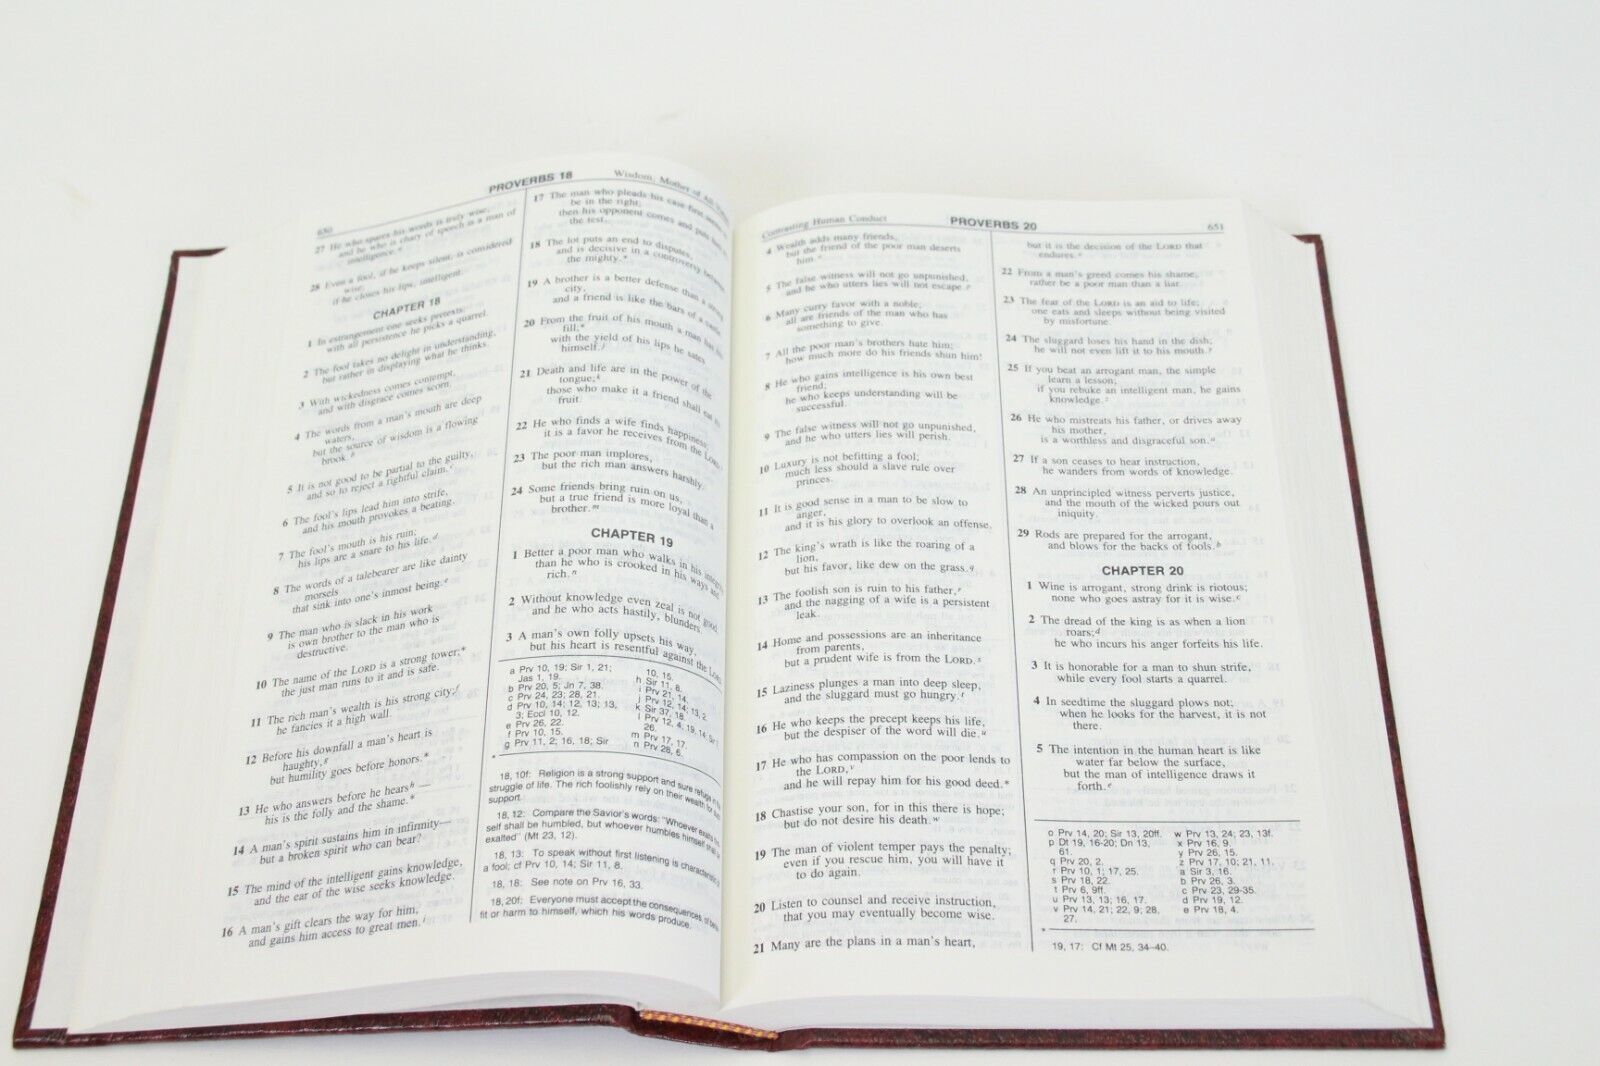 650
PROVERBS 18
Wisdom, Mother of All
27 He who spares his words is truly wise,
and he who is chary of speech is a man of
intelligence.
28 Even a fool, if he keeps silent, is considered
wise;
if he closes his lips, intelligent.
CHAPTER 18
1 In estrangement one seeks pretexts:
with all persistence he picks a quarrel.
2 The fool takes no delight in understanding,
but rather in displaying what he thinks.
3 With wickedness comes contempt,
and with disgrace comes scorn.
4 The words from a man's mouth are deep
waters,
but the source of wisdom is a flowing
brook. b
5 It is not good to be partial to the guilty,
and so to reject a rightful claim. c
6 The fool's lips lead him into strife,
and his mouth provokes a beating.
7 The fool's mouth is his ruin;
his lips are a snare to his life. d
8 The words of a talebearer are like dainty
morsels
that sink into one's inmost being. e
9 The man who is slack in his work
is own brother to the man who is
destructive.
10 The name of the LORD is a strong tower;*
the just man runs to it and is safe.
11 The rich man's wealth is his strong city; f
he fancies it a high wall.
12 Before his downfall a man's heart is
haughty, g
but humility goes before honors.*
13 He who answers before he hears h —
his is the folly and the shame.*
14 A man's spirit sustains him in infirmity—
but a broken spirit who can bear?
15 The mind of the intelligent gains knowledge,
and the ear of the wise seeks knowledge.
16 A man's gift clears the way for him,
and gains him access to great men. i
17 The man who pleads his case first
be in the right;
then his opponent comes and puts
the test.
18 The lot puts an end to disputes,
and is decisive in a controversy between
the mighty.*
19 A brother is a better defense than a strong
city,
and a friend is like the bars of a castle
20 From the fruit of his mouth a man has his
fill;*
with the yield of his lips he sates
himself. j
21 Death and life are in the power of the
tongue; k
those who make it a friend shall eat its
fruit.
22 He who finds a wife finds happiness;
it is a favor he receives from the LORD.
23 The poor man implores,
but the rich man answers harshly.
24 Some friends bring ruin on us,
but a true friend is more loyal than a
brother. m
CHAPTER 19
1 Better a poor man who walks in his integrity
than he who is crooked in his ways and
rich. n
2 Without knowledge even zeal is not good,
and he who acts hastily, blunders.
3 A man's own folly upsets his way,
but his heart is resentful against the LORD.
a Prv 10, 19; Sir 1, 21;
Jas 1, 19.
b Prv 20, 5; Jn 7, 38.
c Prv 24, 23; 28, 21.
d Prv 10, 14; 12, 13; 13,
3; Eccl 10, 12.
e Prv 26, 22.
f Prv 10, 15.
g Prv 11, 2; 16, 18; Sir
10, 15.
h Sir 11, 8.
i Prv 21, 14.
j Prv 12, 14; 13, 2.
k Sir 37, 18.
l Prv 12, 4; 19, 14; Sir
26.
m Prv 17, 17.
n Prv 28, 6.
*
18, 10f: Religion is a strong support and sure refuge in the
struggle of life. The rich foolishly rely on their wealth for such
support.
18, 12: Compare the Savior's words: "Whoever exalts him-
self shall be humbled, but whoever humbles himself shall be
exalted" (Mt 23, 12).
18, 13: To speak without first listening is characteristic of
a fool; cf Prv 10, 14; Sir 11, 8.
18, 18: See note on Prv 16, 33.
18, 20f: Everyone must accept the consequences, of bene-
fit or harm to himself, which his words produce.
Contrasting Human Conduct
PROVERBS 20
651
4 Wealth adds many friends,
but the friend of the poor man deserts
him. o
5 The false witness will not go unpunished,
and he who utters lies will not escape. p
6 Many curry favor with a noble;
all are friends of the man who has
something to give.
7 All the poor man's brothers hate him;
how much more do his friends shun him!
8 He who gains intelligence is his own best
friend;
he who keeps understanding will be
successful.
9 The false witness will not go unpunished,
and he who utters lies will perish.
10 Luxury is not befitting a fool;
much less should a slave rule over
princes.
11 It is good sense in a man to be slow to
anger,
and it is his glory to overlook an offense.
12 The king's wrath is like the roaring of a
lion,
but his favor, like dew on the grass. q
13 The foolish son is ruin to his father, r
and the nagging of a wife is a persistent
leak.
14 Home and possessions are an inheritance
from parents,
but a prudent wife is from the LORD. s
15 Laziness plunges a man into deep sleep,
and the sluggard must go hungry. t
16 He who keeps the precept keeps his life,
but the despiser of the word will die. u
17 He who has compassion on the poor lends to
the LORD, v
and he will repay him for his good deed.*
18 Chastise your son, for in this there is hope;
but do not desire his death. w
19 The man of violent temper pays the penalty;
even if you rescue him, you will have it
to do again.
20 Listen to counsel and receive instruction,
that you may eventually become wise.
21 Many are the plans in a man's heart,
but it is the decision of the LORD that
endures. x
22 From a man's greed comes his shame,
rather be a poor man than a liar.
23 The fear of the LORD is an aid to life;
one eats and sleeps without being visited
by misfortune.
24 The sluggard loses his hand in the dish;
he will not even lift it to his mouth. y
25 If you beat an arrogant man, the simple
learn a lesson;
if you rebuke an intelligent man, he gains
knowledge. z
26 He who mistreats his father, or drives away
his mother,
is a worthless and disgraceful son. a
27 If a son ceases to hear instruction,
he wanders from words of knowledge.
28 An unprincipled witness perverts justice,
and the mouth of the wicked pours out
iniquity.
29 Rods are prepared for the arrogant,
and blows for the backs of fools. b
CHAPTER 20
1 Wine is arrogant, strong drink is riotous;
none who goes astray for it is wise. c
2 The dread of the king is as when a lion
roars; d
he who incurs his anger forfeits his life.
3 It is honorable for a man to shun strife,
while every fool starts a quarrel.
4 In seedtime the sluggard plows not;
when he looks for the harvest, it is not
there.
5 The intention in the human heart is like
water far below the surface,
but the man of intelligence draws it
forth. e
o Prv 14, 20; Sir 13, 20ff.
p Dt 19, 16-20; Dn 13,
61.
q Prv 20, 2.
r Prv 10, 1; 17, 25.
s Prv 18, 22.
t Prv 6, 9ff.
u Prv 13, 13; 16, 17.
v Prv 14, 21; 22, 9; 28,
27.
w Prv 13, 24; 23, 13f.
x Prv 16, 9.
y Prv 26, 15.
z Prv 17, 10; 21, 11.
a Sir 3, 16.
b Prv 26, 3.
c Prv 23, 29-35.
d Prv 19, 12.
e Prv 18, 4.
*
19, 17: Cf Mt 25, 34-40.